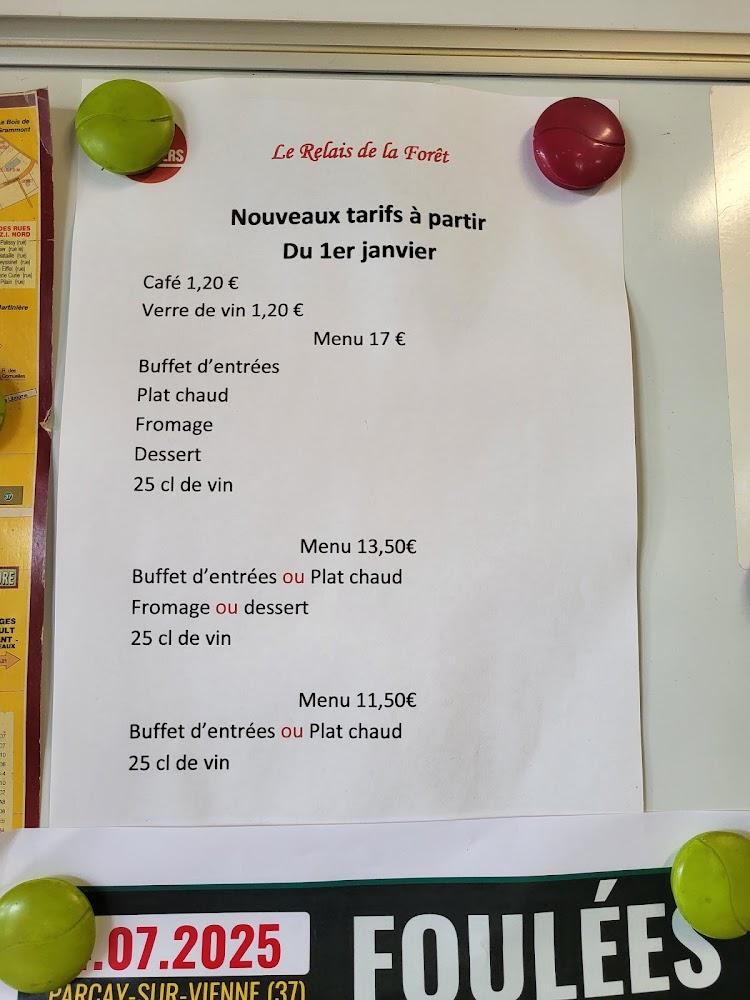 Le Relais de la Forêt
Nouveaux tarifs à partir
Du 1er janvier
Café 1,20 €
Verre de vin 1,20 €
Menu 17 €
Buffet d'entrées
Plat chaud
Fromage
Dessert
25 cl de vin
Menu 13,50€
Buffet d'entrées ou Plat chaud
Fromage ou dessert
25 cl de vin
Menu 11,50€
Buffet d'entrées ou Plat chaud
25 cl de vin
.07.2025
FOULÉES
PARCAY-SUR-VIENNE (37)
DES RUES
Z.I. NORD